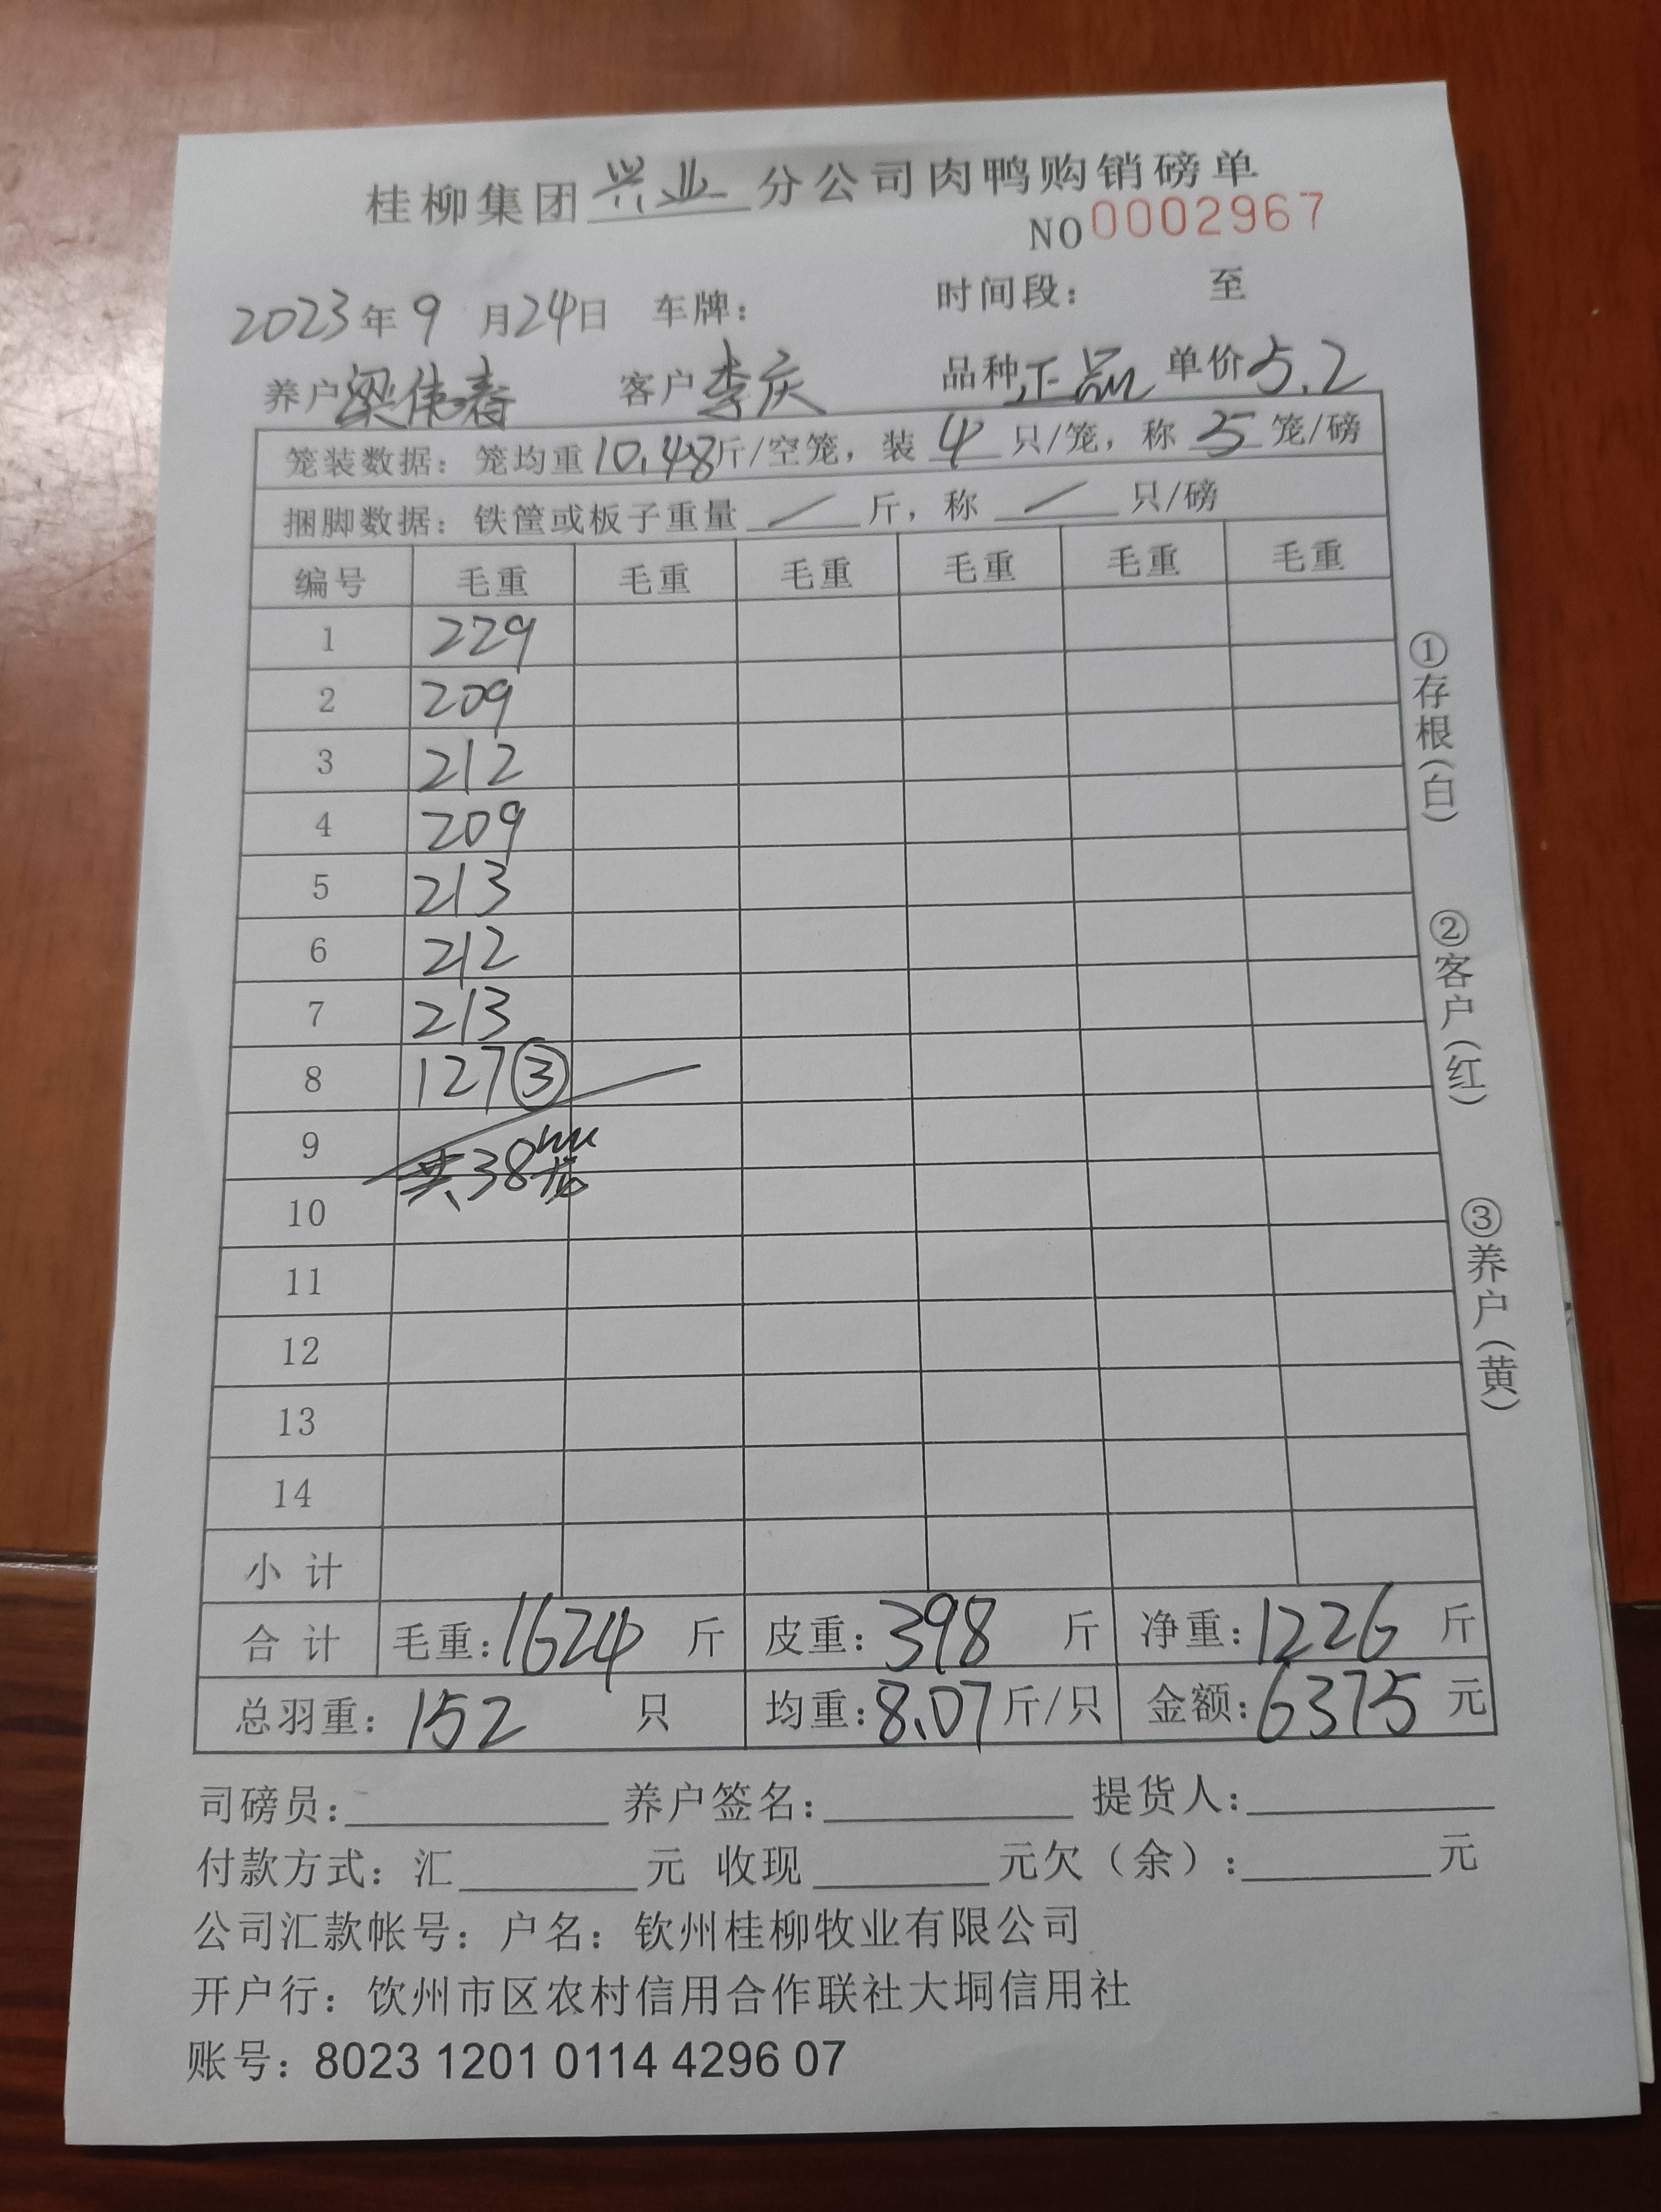 桂柳集团兴业分公司肉鸭购销磅单
NO0002967
2023年9月24日 车牌： 时间段： 至
养户梁伟春 客户李庆 品种正品 单价5.2
笼装数据：笼均重10.48斤/空笼，装4只/笼，称5笼/磅
捆脚数据：铁筐或板子重量／斤，称／只/磅
编号 毛重 毛重 毛重 毛重 毛重 毛重
1 229
2 209
3 212
4 209
5 213
6 212
7 213
8 127③
9
共38笼
10
11
12
13
14
小计
合计 毛重：1624斤 皮重：398斤 净重：1226斤
总羽重：152只 均重：8.07斤/只 金额：6375元
司磅员： 养户签名： 提货人：
付款方式：汇 元 收现 元欠（余）： 元
公司汇款帐号：户名：钦州桂柳牧业有限公司
开户行：饮州市区农村信用合作联社大垌信用社
账号：8023 1201 0114 4296 07
①存根（白）
②客户（红）
③养户（黄）